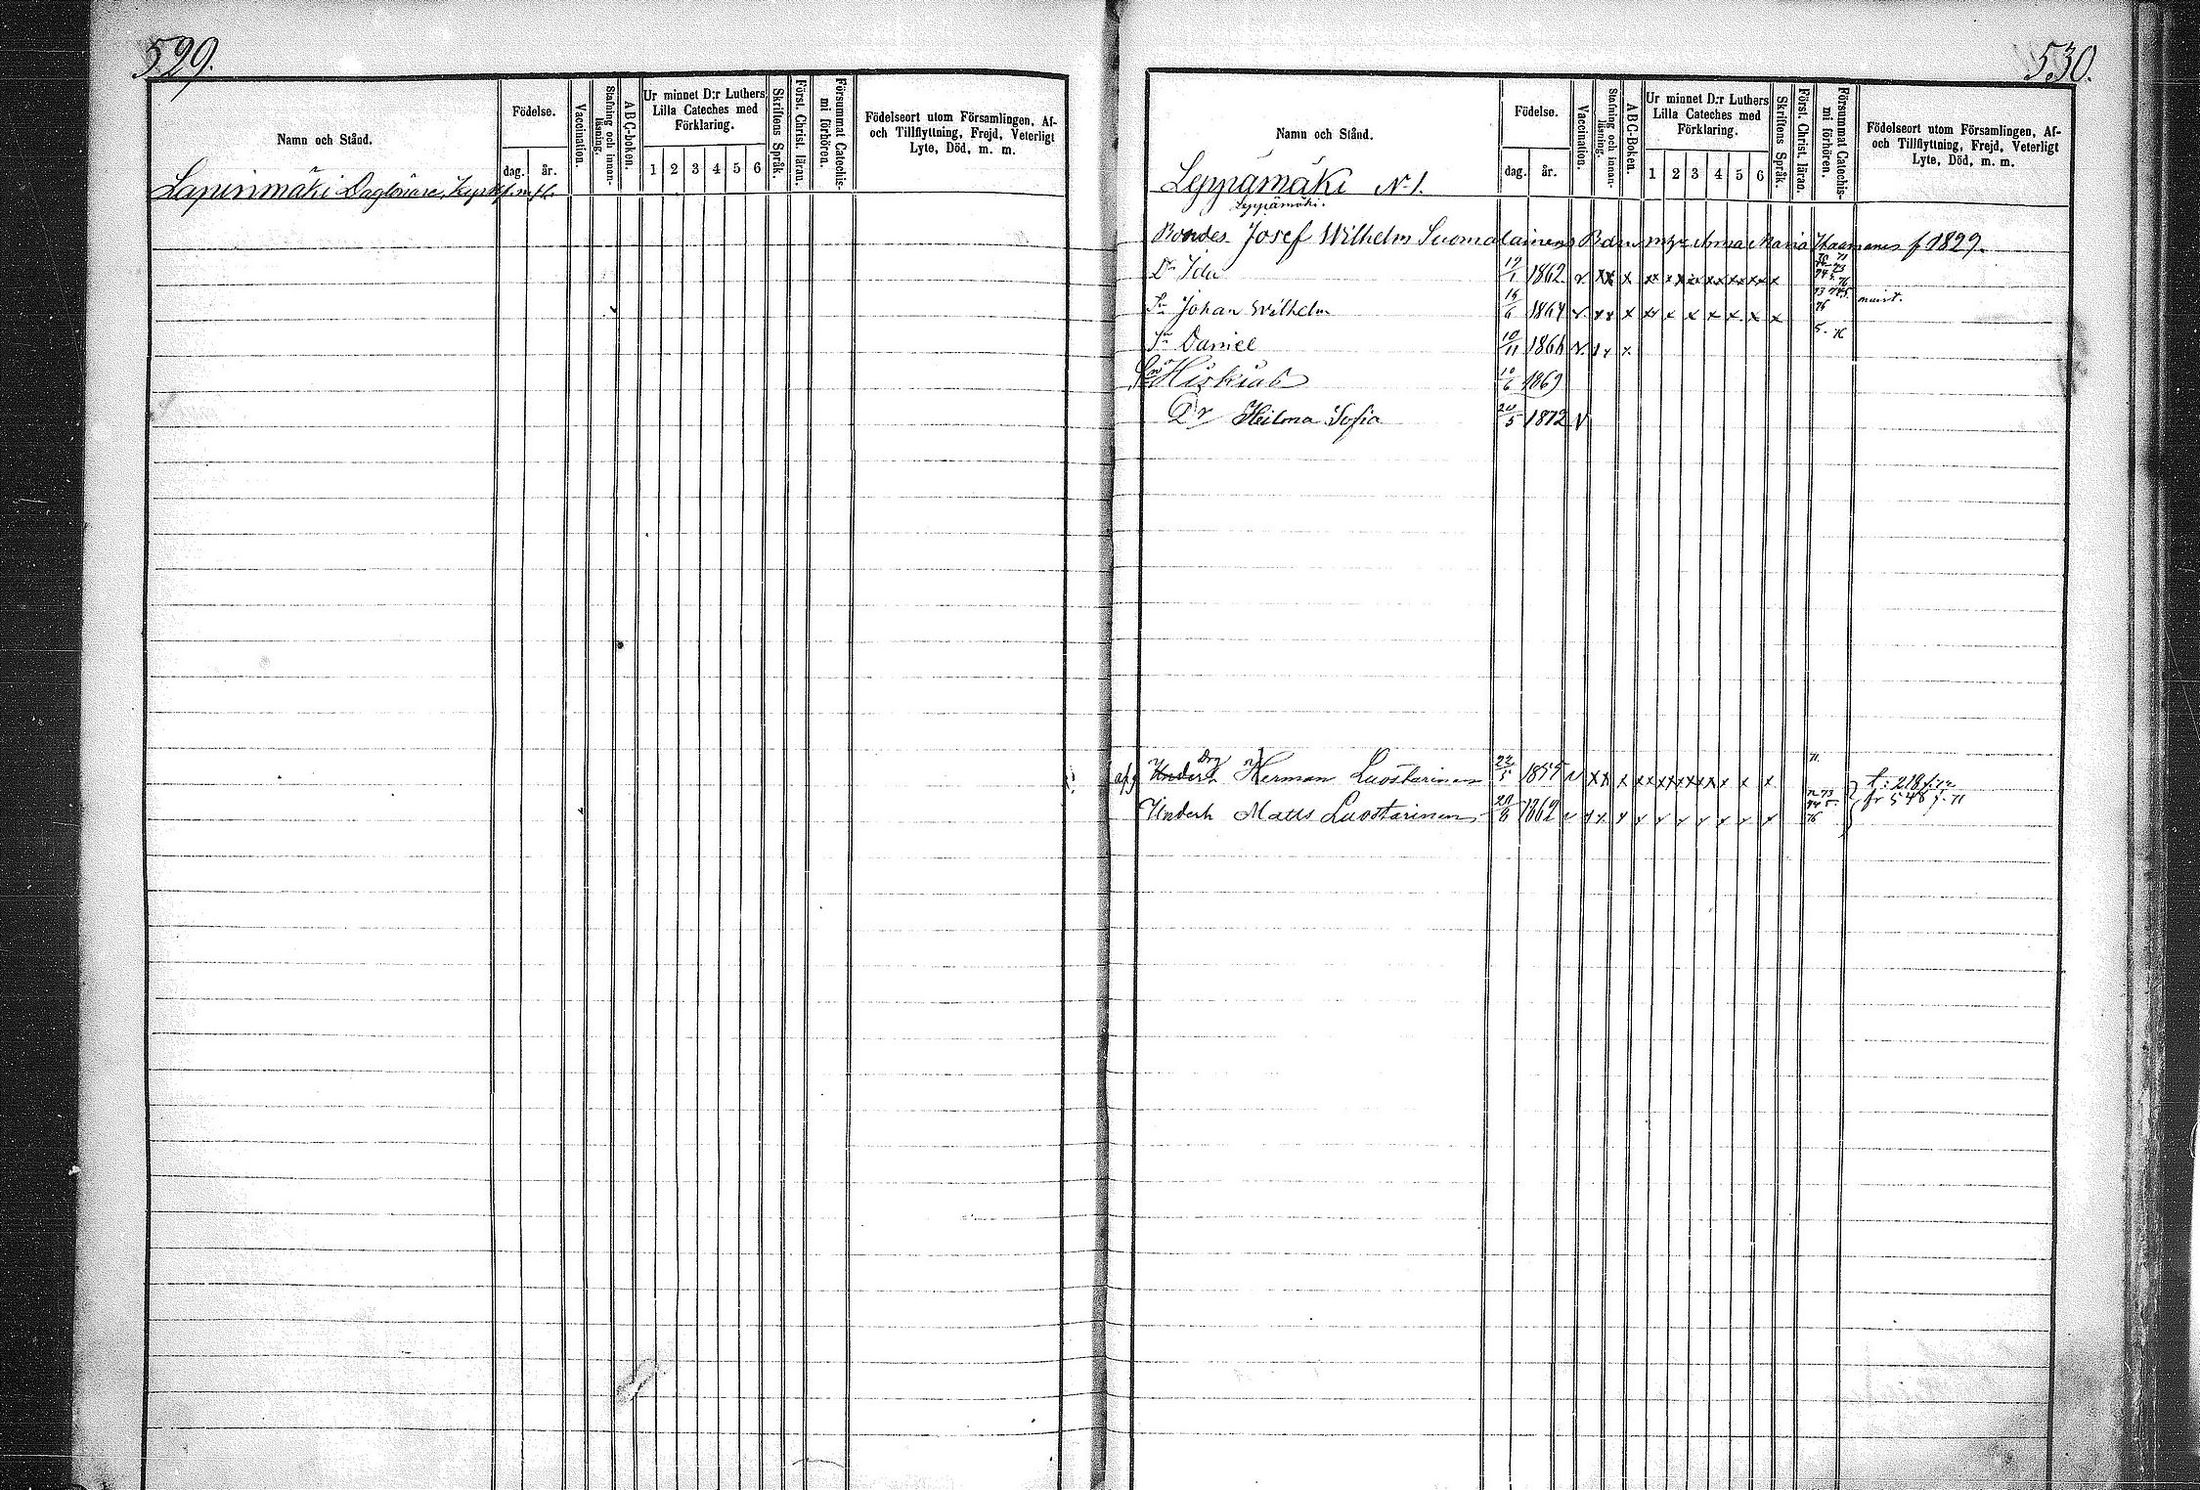 529.
Namn och Stånd.
Födelse.
dag. år.
Vaccination.
Stafning och innanläsning.
ABC-boken.
Ur minnet D:r Luthers
Lilla Cateches med
Förklaring.
1 2 3 4 5 6
Skriftens Språk.
Först. Christ. läran.
Försummat Catechismi förhören.
Födelseort utom Församlingen, Af-
och Tillflyttning, Frejd, Veterligt
Lyte, Död, m. m.
Lapinmäki
530.
Namn och Stånd.
Födelse.
dag. år.
Vaccination.
Stafning och innanläsning.
ABC-Boken.
Ur minnet D:r Luthers
Lilla Cateches med
Förklaring.
1 2 3 4 5 6
Skriftens Språk.
Först. Christ. läran.
Försummat Catechismi förhören.
Födelseort utom Församlingen, Af-
och Tillflyttning, Frejd, Veterligt
Lyte, Död, m. m.
Leppämäki N. 1.
Leppämäki.
Bondes Josef Wilhelm Suomalainens Barn m Anna Maria f 1829.
Dr Ida 1862 v. xx x xx x x x x x x
Sn Johan Wilhelm 1864 v. xx x xx x x x x x x
Sn Daniel 10/11 1866 v.
Sn Hiskias 10/6 1869
Dr Heilma Sofia 1872 v
Underh Drg Herman Luostarinen 22/5 1855 v xx x t: 218
Underh Matts Luostarinen 1862 v fr 548 f. 71